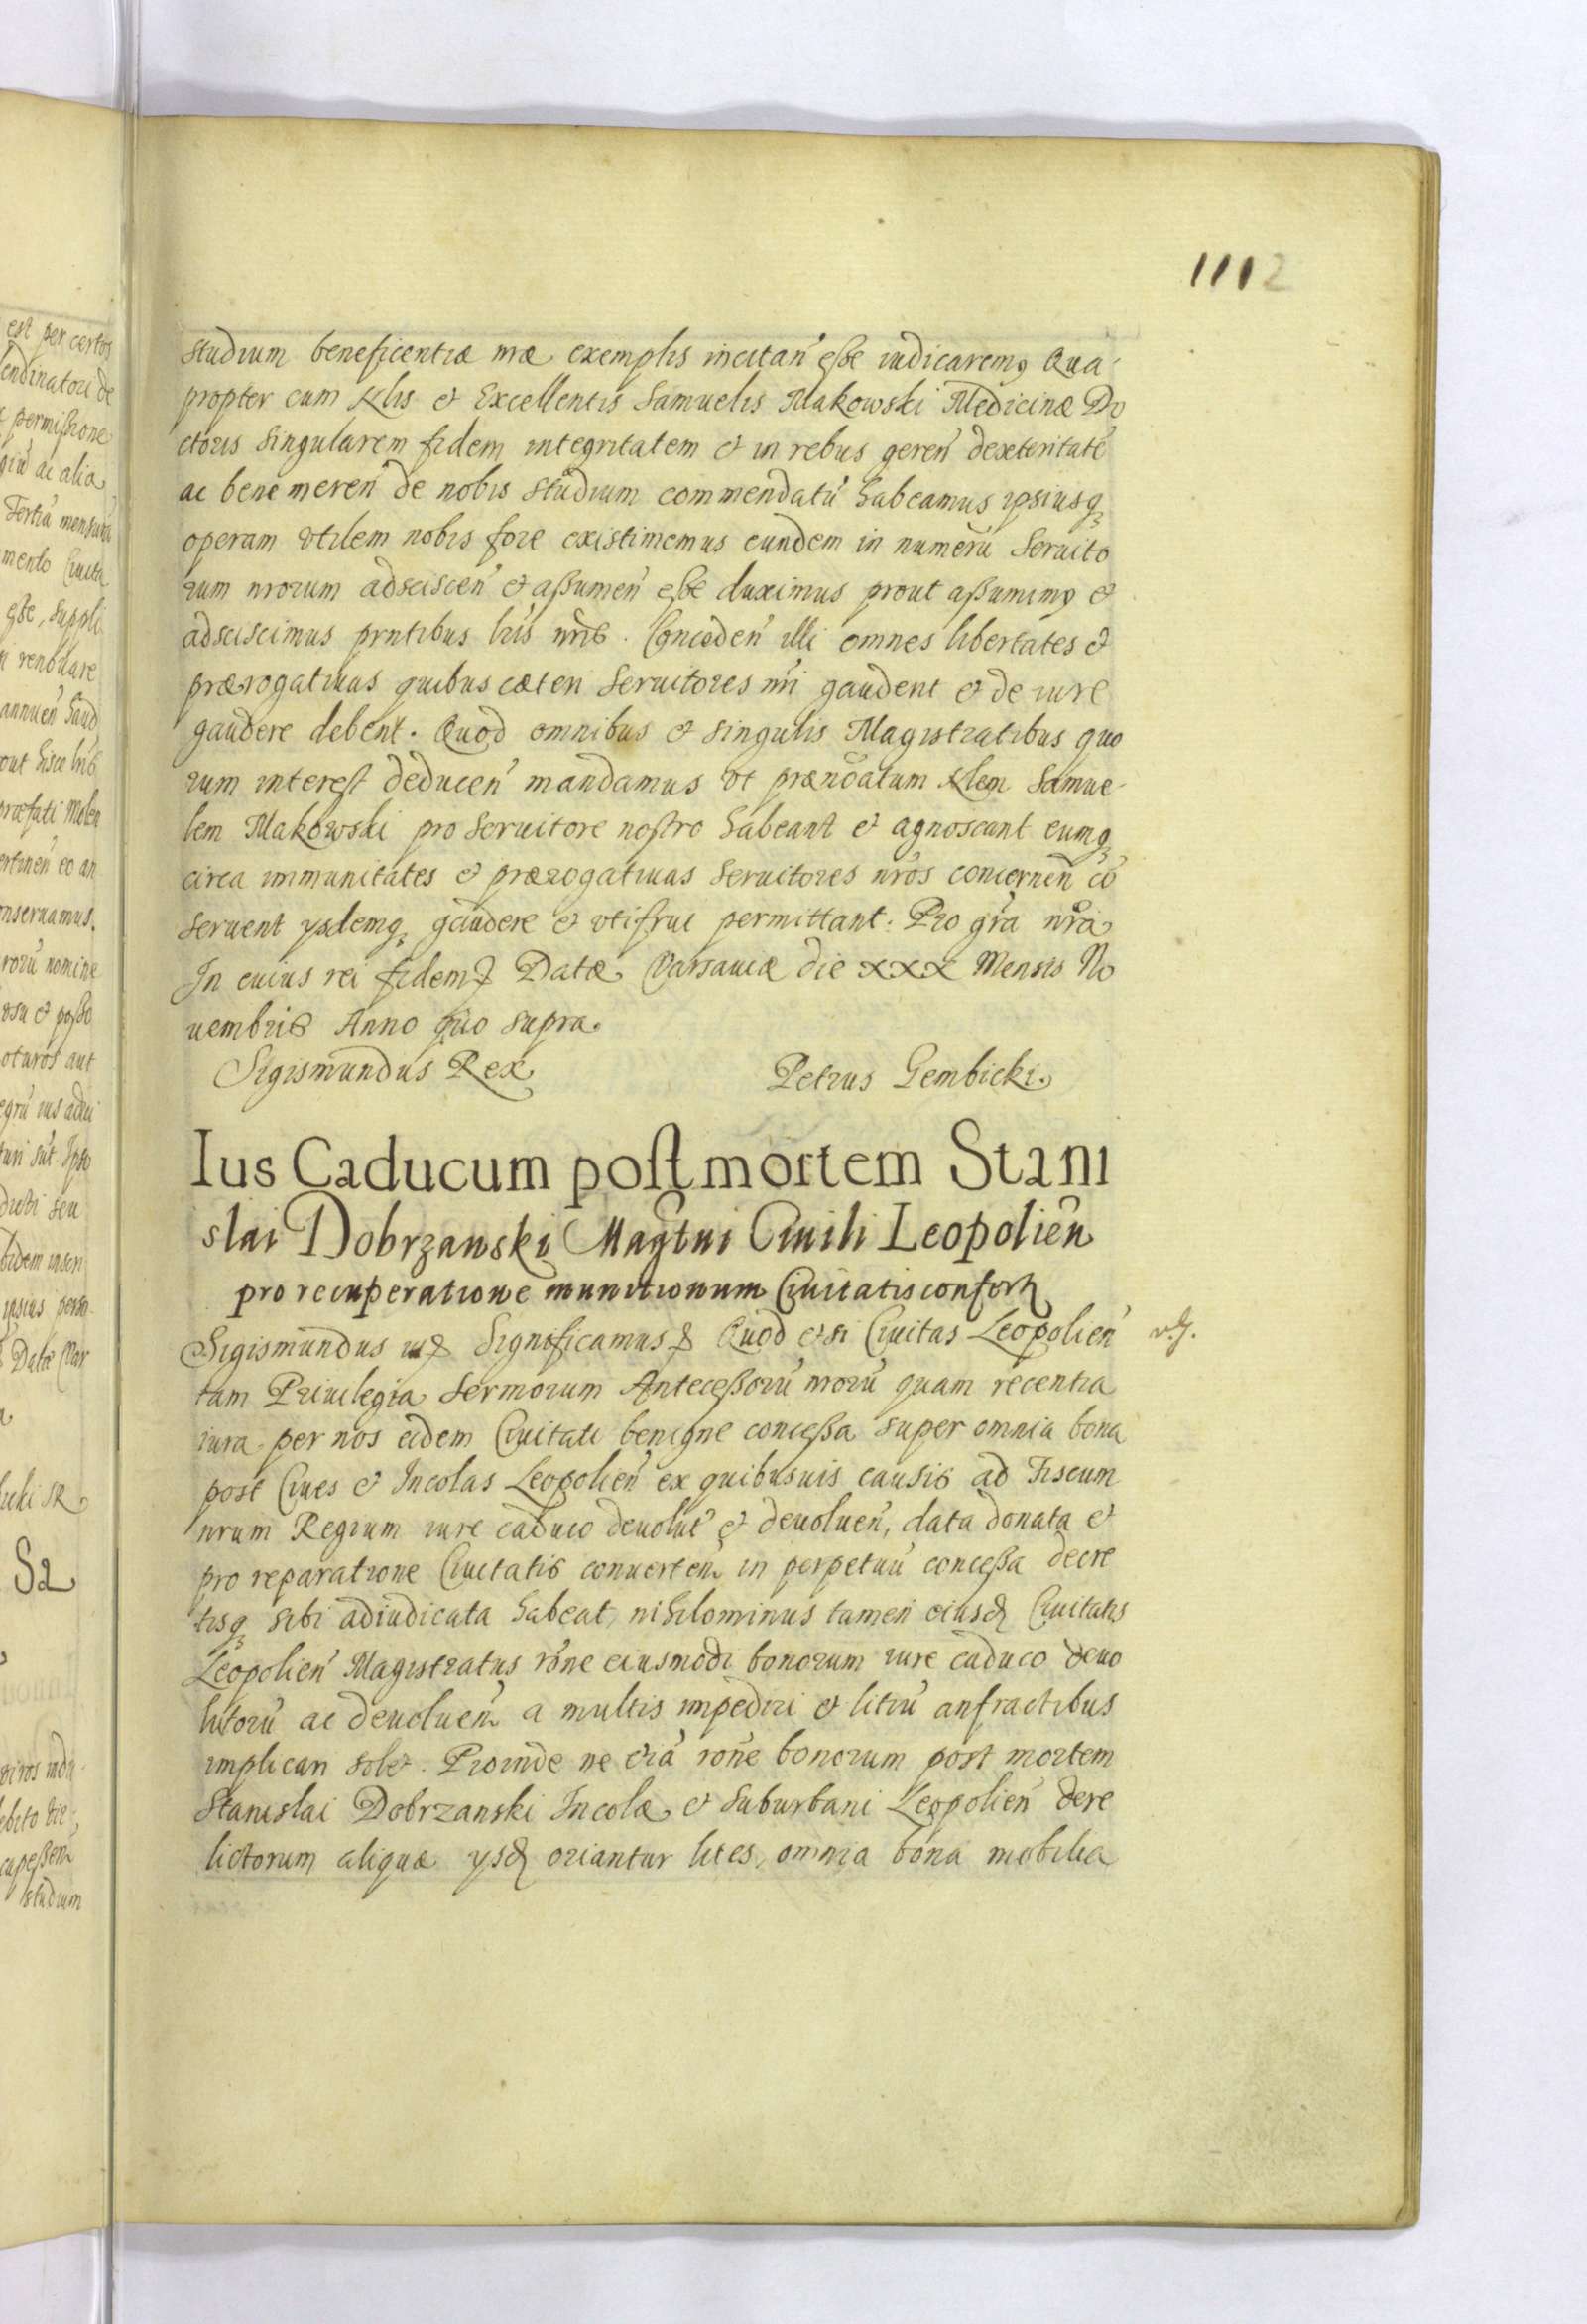 1112
studium beneficentiæ nræ exemplis incitan̄ esse iudicaremq Qua-
propter cum Klis et Excellentis Samuelis Makowski Medicinæ Do
ctoris singularem fidem integritatem et in rebus geren̄ dexteritatē
ac bene meren̄ de nobis studium commendatū habeamus ipsiusq
operam vtilem nobis fore existimemus eundem in numerū Seruito
rum nrorum adsciscen̄ et assumen̄ esse duximus prout assumimq et
adsciscimus prntibus lris nris. Conceden̄ illi omnes libertates et
prærogatiuas quibus cæteri Seruitores nri gaudent et de iure
gaudere debent. Quod omnibus et singulis Magistratibus quo
rum interest deducen̄ mandamus vt prænoatum Klem Samue-
lem Makowski pro Seruitore nostro habeant et agnoscant eumq
circa immunitates et prærogatiuas Seruitores nros concernen̄ cō
seruent ysdemq gaudere et vtifrui permittant. Pro gra nra
In cuius rei fidem Datæ Varsauiæ die XXX Mensis No
uembris Anno quo supra.
Sigismundus Rex Petrus Gembicki.
Ius Caducum post mortem Stani
slai Dobrzanski Magtui Ciuili Leopolien̄
pro recuperatione munitionum Ciuitatis confert
Sigismundus Significamus Quod etsi Ciuitas Leopolien̄
tam Priuilegia Sermorum Antecessorū nrorū quam recentia
iura per nos eidem Ciuitati benigne concessa super omnia bona
post Ciues et Incolas Leopolien̄ ex quibusuis causis ad Fiscum
nrum Regium iure caduco deuolut̄ et deuoluen̄, data donata et
pro reparatione Ciuitatis conuerten̄ in perpetuū concessa decre
tisq sibi adiudicata habeat, nihilominus tamen eiusd Ciuitatis
Leopolien̄ Magistratus rōne eiusmodi bonorum iure caduco deuo
lutorū ac deuoluen̄ a multis impediri et litiū anfractibus
implicari solet. Proinde ne etiā rōne bonorum post mortem
Stanislai Dobrzanski Incolæ et Suburbani Leopolien̄ dere
lictorum aliquæ ysd oriantur lites, omnia bona mobilia